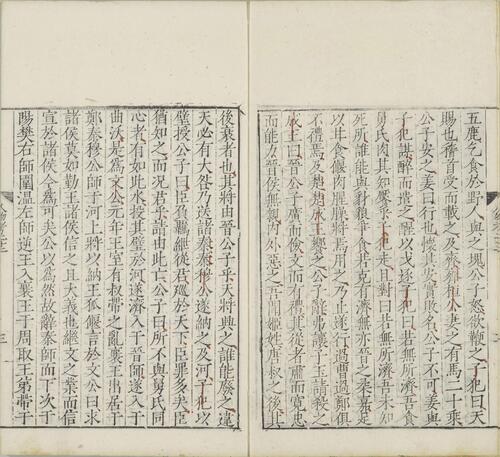 五鹿乞食於野人與之塊公子怒欲鞭之子犯曰天
賜也稽首受而載之及齊齊桓公妻之有馬二十乘
公子安之姜曰行也懷其安實敗名公子不可姜與
子犯謀醉而遣之醒以戈逐子犯曰若無所濟吾食
舅氏肉其知饜乎子犯走且對曰若無所濟吾未知
死所誰能與豺狼爭食若克有濟無亦晉之柔嘉是
以甘食偃肉腥臊將焉用之乃止遂行過曹過鄭俱
不禮焉及楚楚成王饗之公子辭弗讓子玉請殺之
成王曰晉公子廣而儉文而有禮其從者肅而寬忠
而能力晉侯無親內外惡之吾聞姬姓唐叔之後其
後衰者也其將由晉公子乎天將興之誰能廢之違
天必有大咎乃送諸秦秦穆公遂納之及河子犯以
璧授公子曰臣負羈絏從君巡於天下臣罪多矣臣
猶知之而况君乎請由此亡公子曰所不與舅氏同
心者有如此水投其璧於河遂濟入于晉師遂入于
曲沃是爲文公元年王室有叔帶之亂襄王出居于
鄭秦穆公師于河上將以納王狐偃言於文公曰求
諸侯莫如勤王諸侯信之且大義也繼文之業而信
宣於諸侯今爲可矣公以爲然故辭秦師而下次于
陽樊右師圍溫左師逆王入襄王于周取王弟帶于